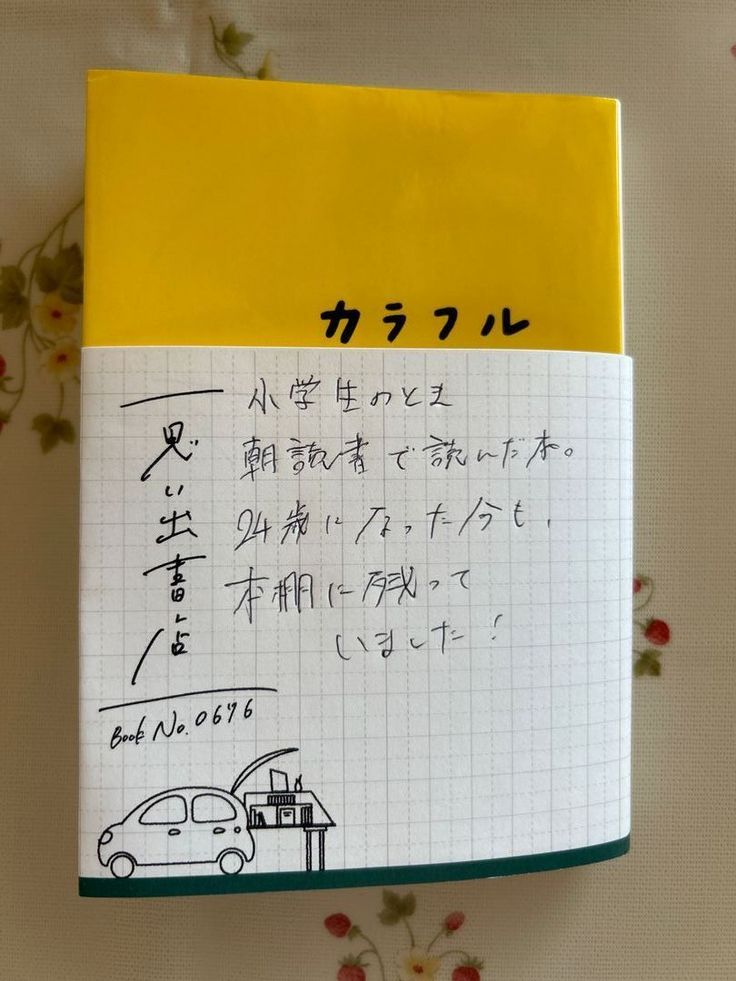 カラフル
思い出書店
Book No. 0676
小学生のとき
朝読書で読んだ本。
24歳になった今も、
本棚に残って
いました!